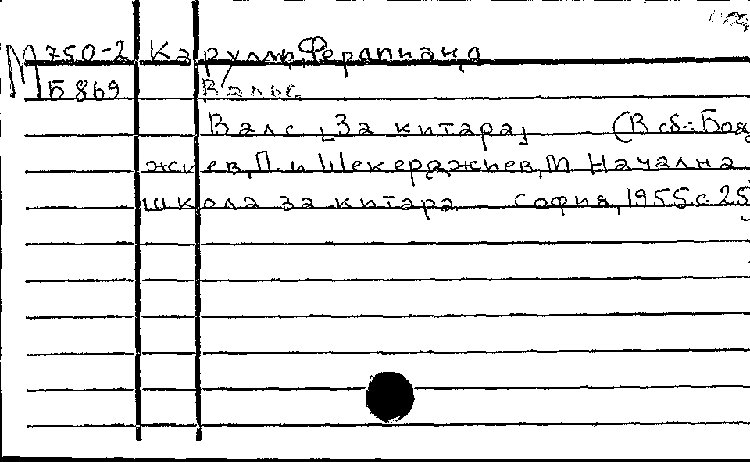 М 750-2 Карулли, Фердинанд
Б 869 Вальс
Валс [За китара] (В сб.: Бояд
жиев, П. и Шекерджиев, М. Начална
школа за китара София, 1955 с. 25